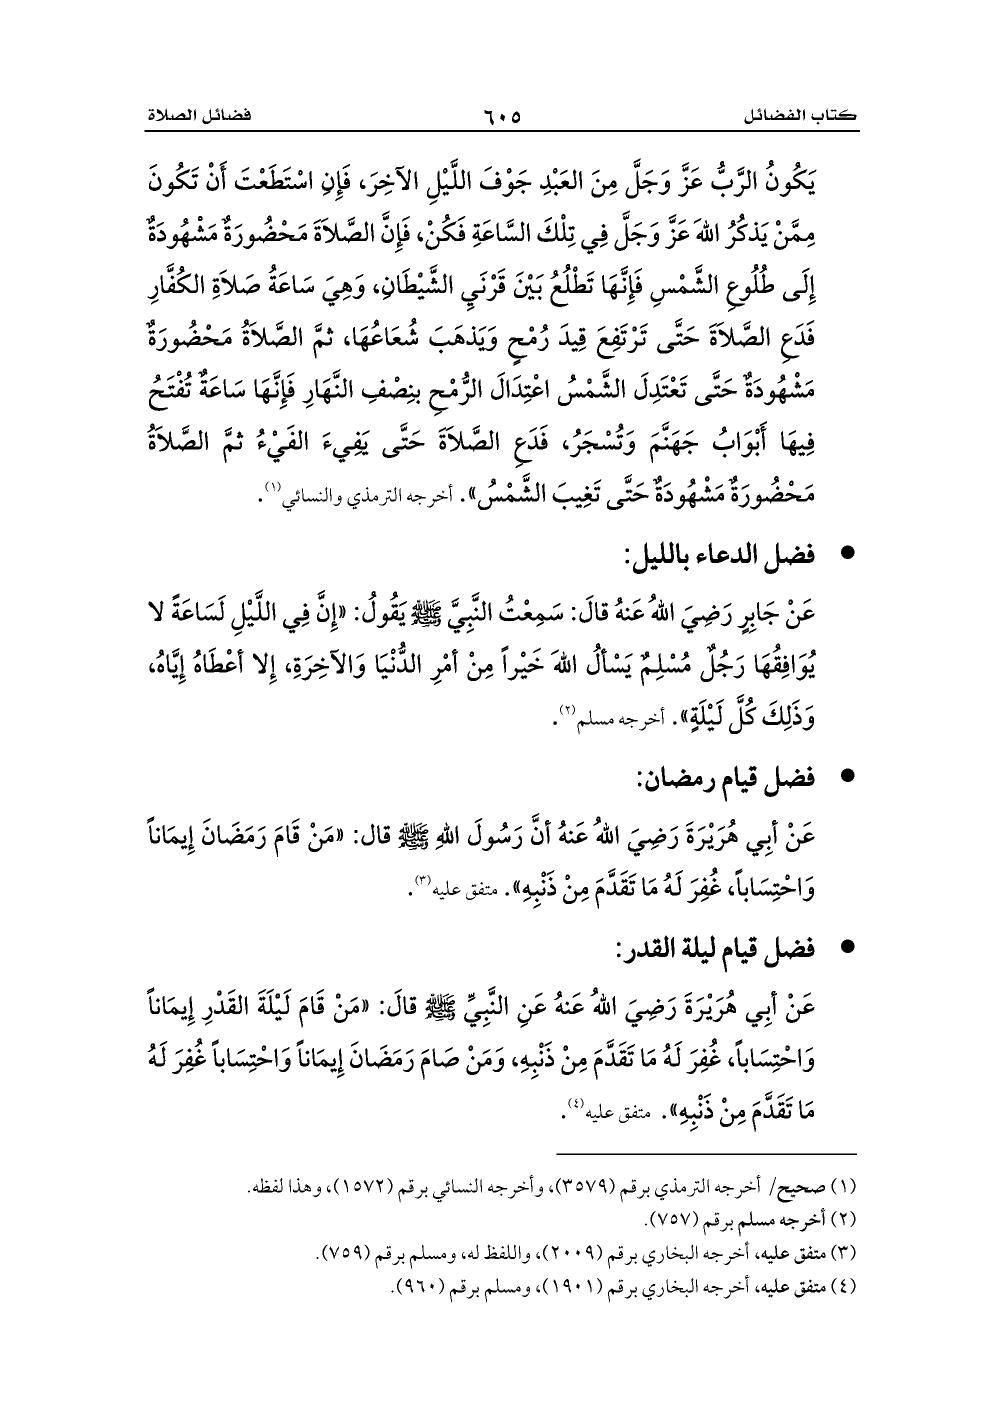 كتاب الفضائل ٦٠٥ فضائل الصلاة
يَكُونُ الرَّبُّ عَزَّ وَجَلَّ مِنَ العَبْدِ جَوْفَ اللَّيْلِ الآخِرَ، فَإِنِ اسْتَطَعْتَ أَنْ تَكُونَ
مِمَّنْ يَذكُرُ اللهَ عَزَّ وَجَلَّ فِي تِلْكَ السَّاعَةِ فَكُنْ، فَإِنَّ الصَّلاَةَ مَحْضُورَةٌ مَشْهُودَةٌ
إِلَى طُلُوعِ الشَّمْسِ فَإِنَّهَا تَطْلُعُ بَيْنَ قَرْنَيِ الشَّيْطَانِ، وَهِيَ سَاعَةُ صَلاَةِ الكُفَّارِ
فَدَعِ الصَّلاَةَ حَتَّى تَرْتَفِعَ قِيدَ رُمْحٍ وَيَذهَبَ شُعَاعُهَا، ثمَّ الصَّلاَةُ مَحْضُورَةٌ
مَشْهُودَةٌ حَتَّى تَعْتَدِلَ الشَّمْسُ اعْتِدَالَ الرُّمْحِ بنِصْفِ النَّهَارِ فَإِنَّهَا سَاعَةٌ تُفْتَحُ
فِيهَا أَبْوَابُ جَهَنَّمَ وَتُسْجَرُ، فَدَعِ الصَّلاَةَ حَتَّى يَفِيءَ الفَيْءُ ثمَّ الصَّلاَةُ
مَحْضُورَةٌ مَشْهُودَةٌ حَتَّى تَغِيبَ الشَّمْسُ». أخرجه الترمذي والنسائي(١).
● فضل الدعاء بالليل:
عَنْ جَابِرٍ رَضِيَ اللهُ عَنهُ قالَ: سَمِعْتُ النَّبِيَّ ﷺ يَقُولُ: «إِنَّ فِي اللَّيْلِ لَسَاعَةً لا
يُوَافِقُهَا رَجُلٌ مُسْلِمٌ يَسْألُ اللهَ خَيْراً مِنْ أمْرِ الدُّنْيَا وَالآخِرَةِ، إِلا أعْطَاهُ إِيَّاهُ،
وَذَلِكَ كُلَّ لَيْلَةٍ». أخرجه مسلم(٢).
● فضل قيام رمضان:
عَنْ أبِي هُرَيْرَةَ رَضِيَ اللهُ عَنهُ أنَّ رَسُولَ اللهِ ﷺ قال: «مَنْ قَامَ رَمَضَانَ إِيمَاناً
وَاحْتِسَاباً، غُفِرَ لَهُ مَا تَقَدَّمَ مِنْ ذَنْبِهِ». متفق عليه(٣).
● فضل قيام ليلة القدر:
عَنْ أبِي هُرَيْرَةَ رَضِيَ اللهُ عَنهُ عَنِ النَّبِيِّ ﷺ قالَ: «مَنْ قَامَ لَيْلَةَ القَدْرِ إِيمَاناً
وَاحْتِسَاباً، غُفِرَ لَهُ مَا تَقَدَّمَ مِنْ ذَنْبِهِ، وَمَنْ صَامَ رَمَضَانَ إِيمَاناً وَاحْتِسَاباً غُفِرَ لَهُ
مَا تَقَدَّمَ مِنْ ذَنْبِهِ». متفق عليه(٤).
(١) صحيح/ أخرجه الترمذي برقم (٣٥٧٩)، وأخرجه النسائي برقم (١٥٧٢)، وهذا لفظه.
(٢) أخرجه مسلم برقم (٧٥٧).
(٣) متفق عليه، أخرجه البخاري برقم (٢٠٠٩)، واللفظ له، ومسلم برقم (٧٥٩).
(٤) متفق عليه، أخرجه البخاري برقم (١٩٠١)، ومسلم برقم (٩٦٠).